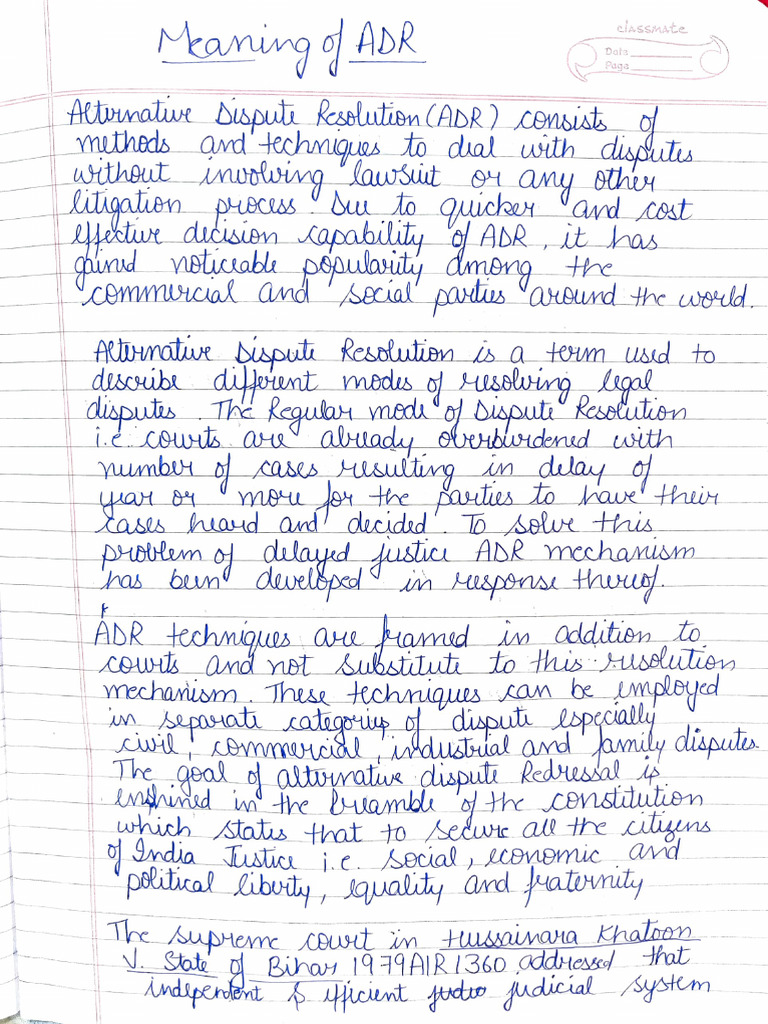 Meaning of ADR
classmate
Date
Page
Alternative Dispute Resolution (ADR) consists of
methods and techniques to deal with disputes
without involving lawsuit or any other
litigation process. Due to quicker and cost
effective decision capability of ADR, it has
gained noticeable popularity among the
commercial and social parties around the world.
Alternative Dispute Resolution is a term used to
describe different modes of resolving legal
disputes. The Regular mode of Dispute Resolution
i.e. courts are already overburdened with
number of cases resulting in delay of
year or more for the parties to have their
cases heard and decided. To solve this
problem of delayed justice ADR mechanism
has been developed in response thereof.
ADR techniques are framed in addition to
courts and not substitute to this resolution
mechanism. These techniques can be employed
in separate categories of dispute especially
civil, commercial, industrial and family disputes.
The goal of alternative dispute Redressal is
enshrined in the Preamble of the constitution
which states that to secure all the citizens
of India Justice i.e. social, economic and
political liberty, equality and fraternity
The supreme court in Hussainara Khatoon
V. State of Bihar 1979 AIR 1360 addressed that
independent & efficient judicial system